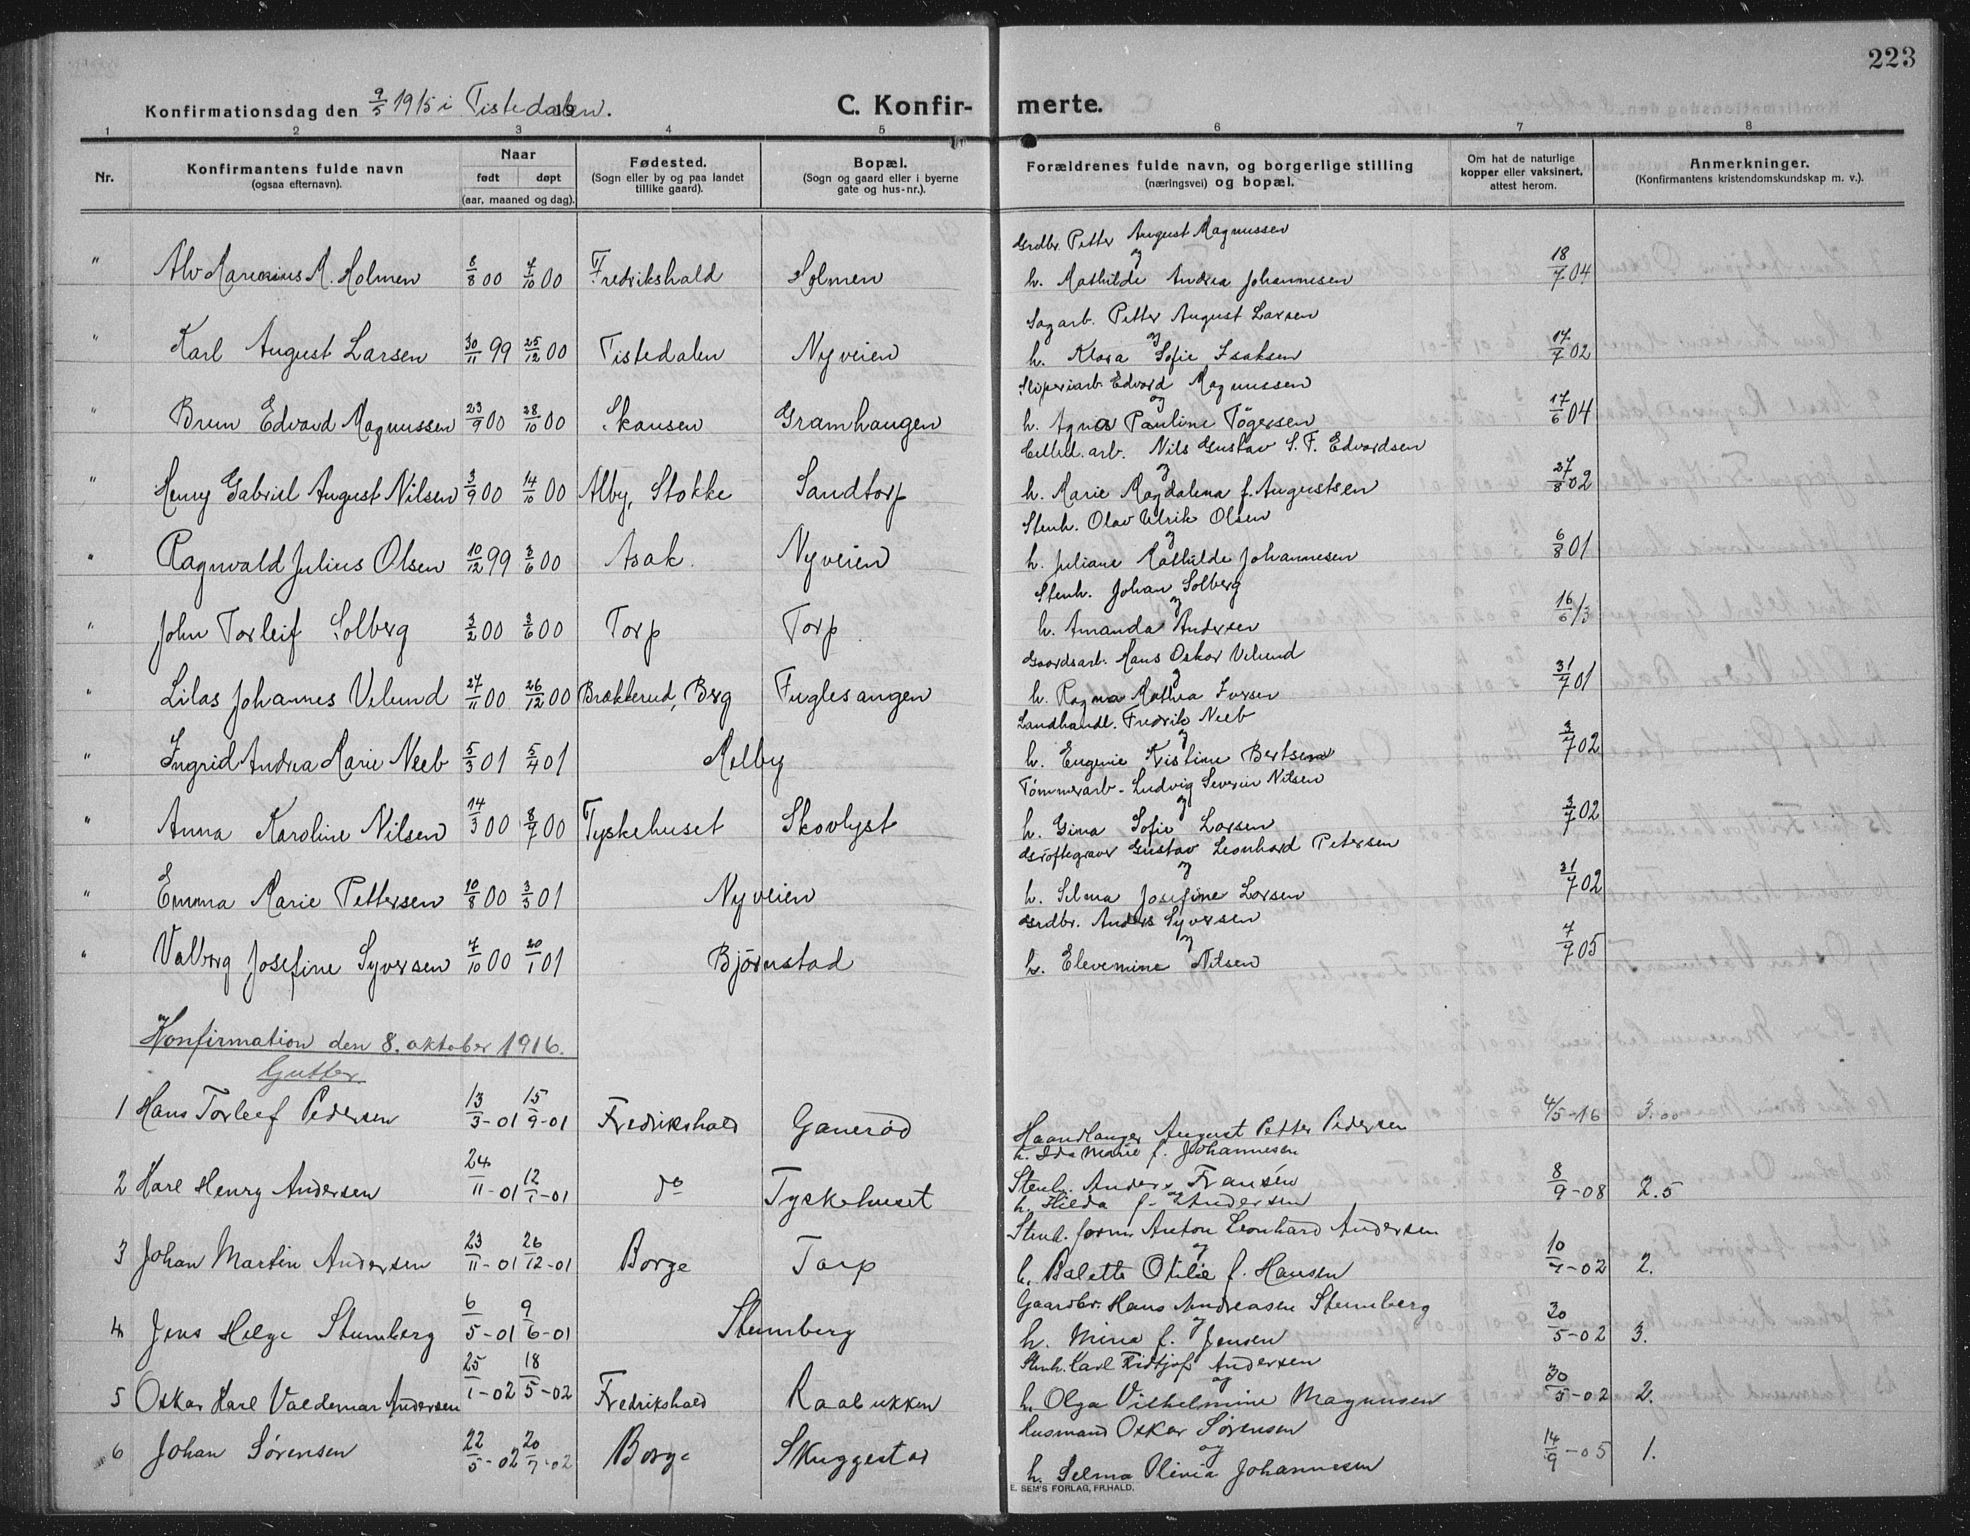 223
Konfirmationsdag den 9/5 1915 i Tistedalen. C. Konfirmerte.
1 2 3 4 5 6 7 8
Nr. Konfirmantens fulde navn (ogsaa efternavn). Naar født døpt (aar, maaned og dag). Fødested. (Sogn eller by og paa landet tillike gaard). Bopæl. (Sogn og gaard eller i byerne gate og hus-nr.). Forældrenes fulde navn, og borgerlige stilling (næringsvei) og bopæl. Om hat de naturlige kopper eller vaksinert, attest herom. Anmerkninger. (Konfirmantens kristendomskundskap m. v.).
Grdbr. Petter August Magnussen
" Alv Marenius M. Holmen 8/8 00 7/10 00 Fredrikshald Holmen og h. Mathilde Andrea Johannesen 18/7 04
Sagarb. Petter August Larsen
" Karl August Larsen 30/11 99 25/12 00 Tistedalen Nyveien og h. Klara Sofie Isaksen 17/7 02
Sliperiarb. Edvard Magnussen
" Brun Edvard Magnussen 23/9 00 28/10 00 Skansen Gramhaugen og h. Agnes Pauline Tögersen 17/6 04
Cellul. arb. Nils Gustav S. F. Edvardsen
" Henry Gabriel August Nilsen 3/9 00 14/10 00 Alby, Stokke Sandtorp og h. Marie Magdalena f. Augustsen 27/8 02
Stenh. Olav Ulrik Olsen
" Ragnvald Julius Olsen 10/12 99 3/6 00 Asak. Nyveien og h. Juliane Mathilde Johannesen 6/8 01
Stenh. Johan Solberg
" John Torleif Solberg 3/2 00 3/6 00 Torp Torp og h. Amanda Andersen 16/6 13
Gaardsarb. Hans Oskar Velund
" Lilas Johannes Velund 27/11 00 26/12 00 Brækkerud, Berg Fuglesangen og h. Ragna Mathea Iversen 31/7 01
Landhandl. Fredrik Neeb
" Ingrid Andrea Marie Neeb 5/3 01 5/4 01 Melby og h. Eugenie Kristine Bertsen 3/7 02
Tømmerarb. Ludvig Severin Nilsen
" Anna Karoline Nilsen 14/3 00 8/7 00 Tyskehuset Skovlyst og h. Gina Sofie Larsen 3/7 02
Grøftegraver Gustav Leonhard Petersen
" Emma Marie Pettersen 10/8 00 3/3 01 Nyveien og h. Selma Josefine Larsen 31/7 02
Grdbr. Anders Syversen
" Valborg Josefine Syversen 7/10 00 20/1 01 Björnstad og h. Elevemine Nilsen 7/9 05
Konfirmation den 8. oktober 1916.
Gutter
1 Hans Torleef Pedersen 13/3-01 15/9-01 Fredrikshald Ganerød Haandlanger August Petter Pedersen 4/5-16 3.00
h. Ida Marie f. Johannesen
2 Karl Henry Andersen 24/11-01 12/1-01 do Tyskehuset Stenh. Anders Fransén 8/9-08 2.5
og h. Hilda f. Andersen
Stenh. form. Anton Leonhard Andersen
3 Johan Martin Andersen 23/11-01 26/12-01 Borge Torp og h. Balette Otilie f. Hansen 10/7-02 2.
Gaardbr. Hans Andreasen Stumberg
4 Jens Helge Stumberg 6/5-01 9/6-01 Stumberg og h. Mina f. Jensen 20/5-02 3.
Stenh. Karl Fridtjof Andersen
5 Oskar Karl Valdemar Andersen 25/1-02 18/5-02 Fredrikshald Raabukken og h. Olga Vilhelmine Magnusen 30/5-02 2.
Husmand Oskar Sørensen
6 Johan Sørensen 22/5-02 20/7-02 Borge Skuggestad og h. Selma Olivia Johannesen 14/9-05 1.
E. SEM'S FORLAG, FR.HALD.